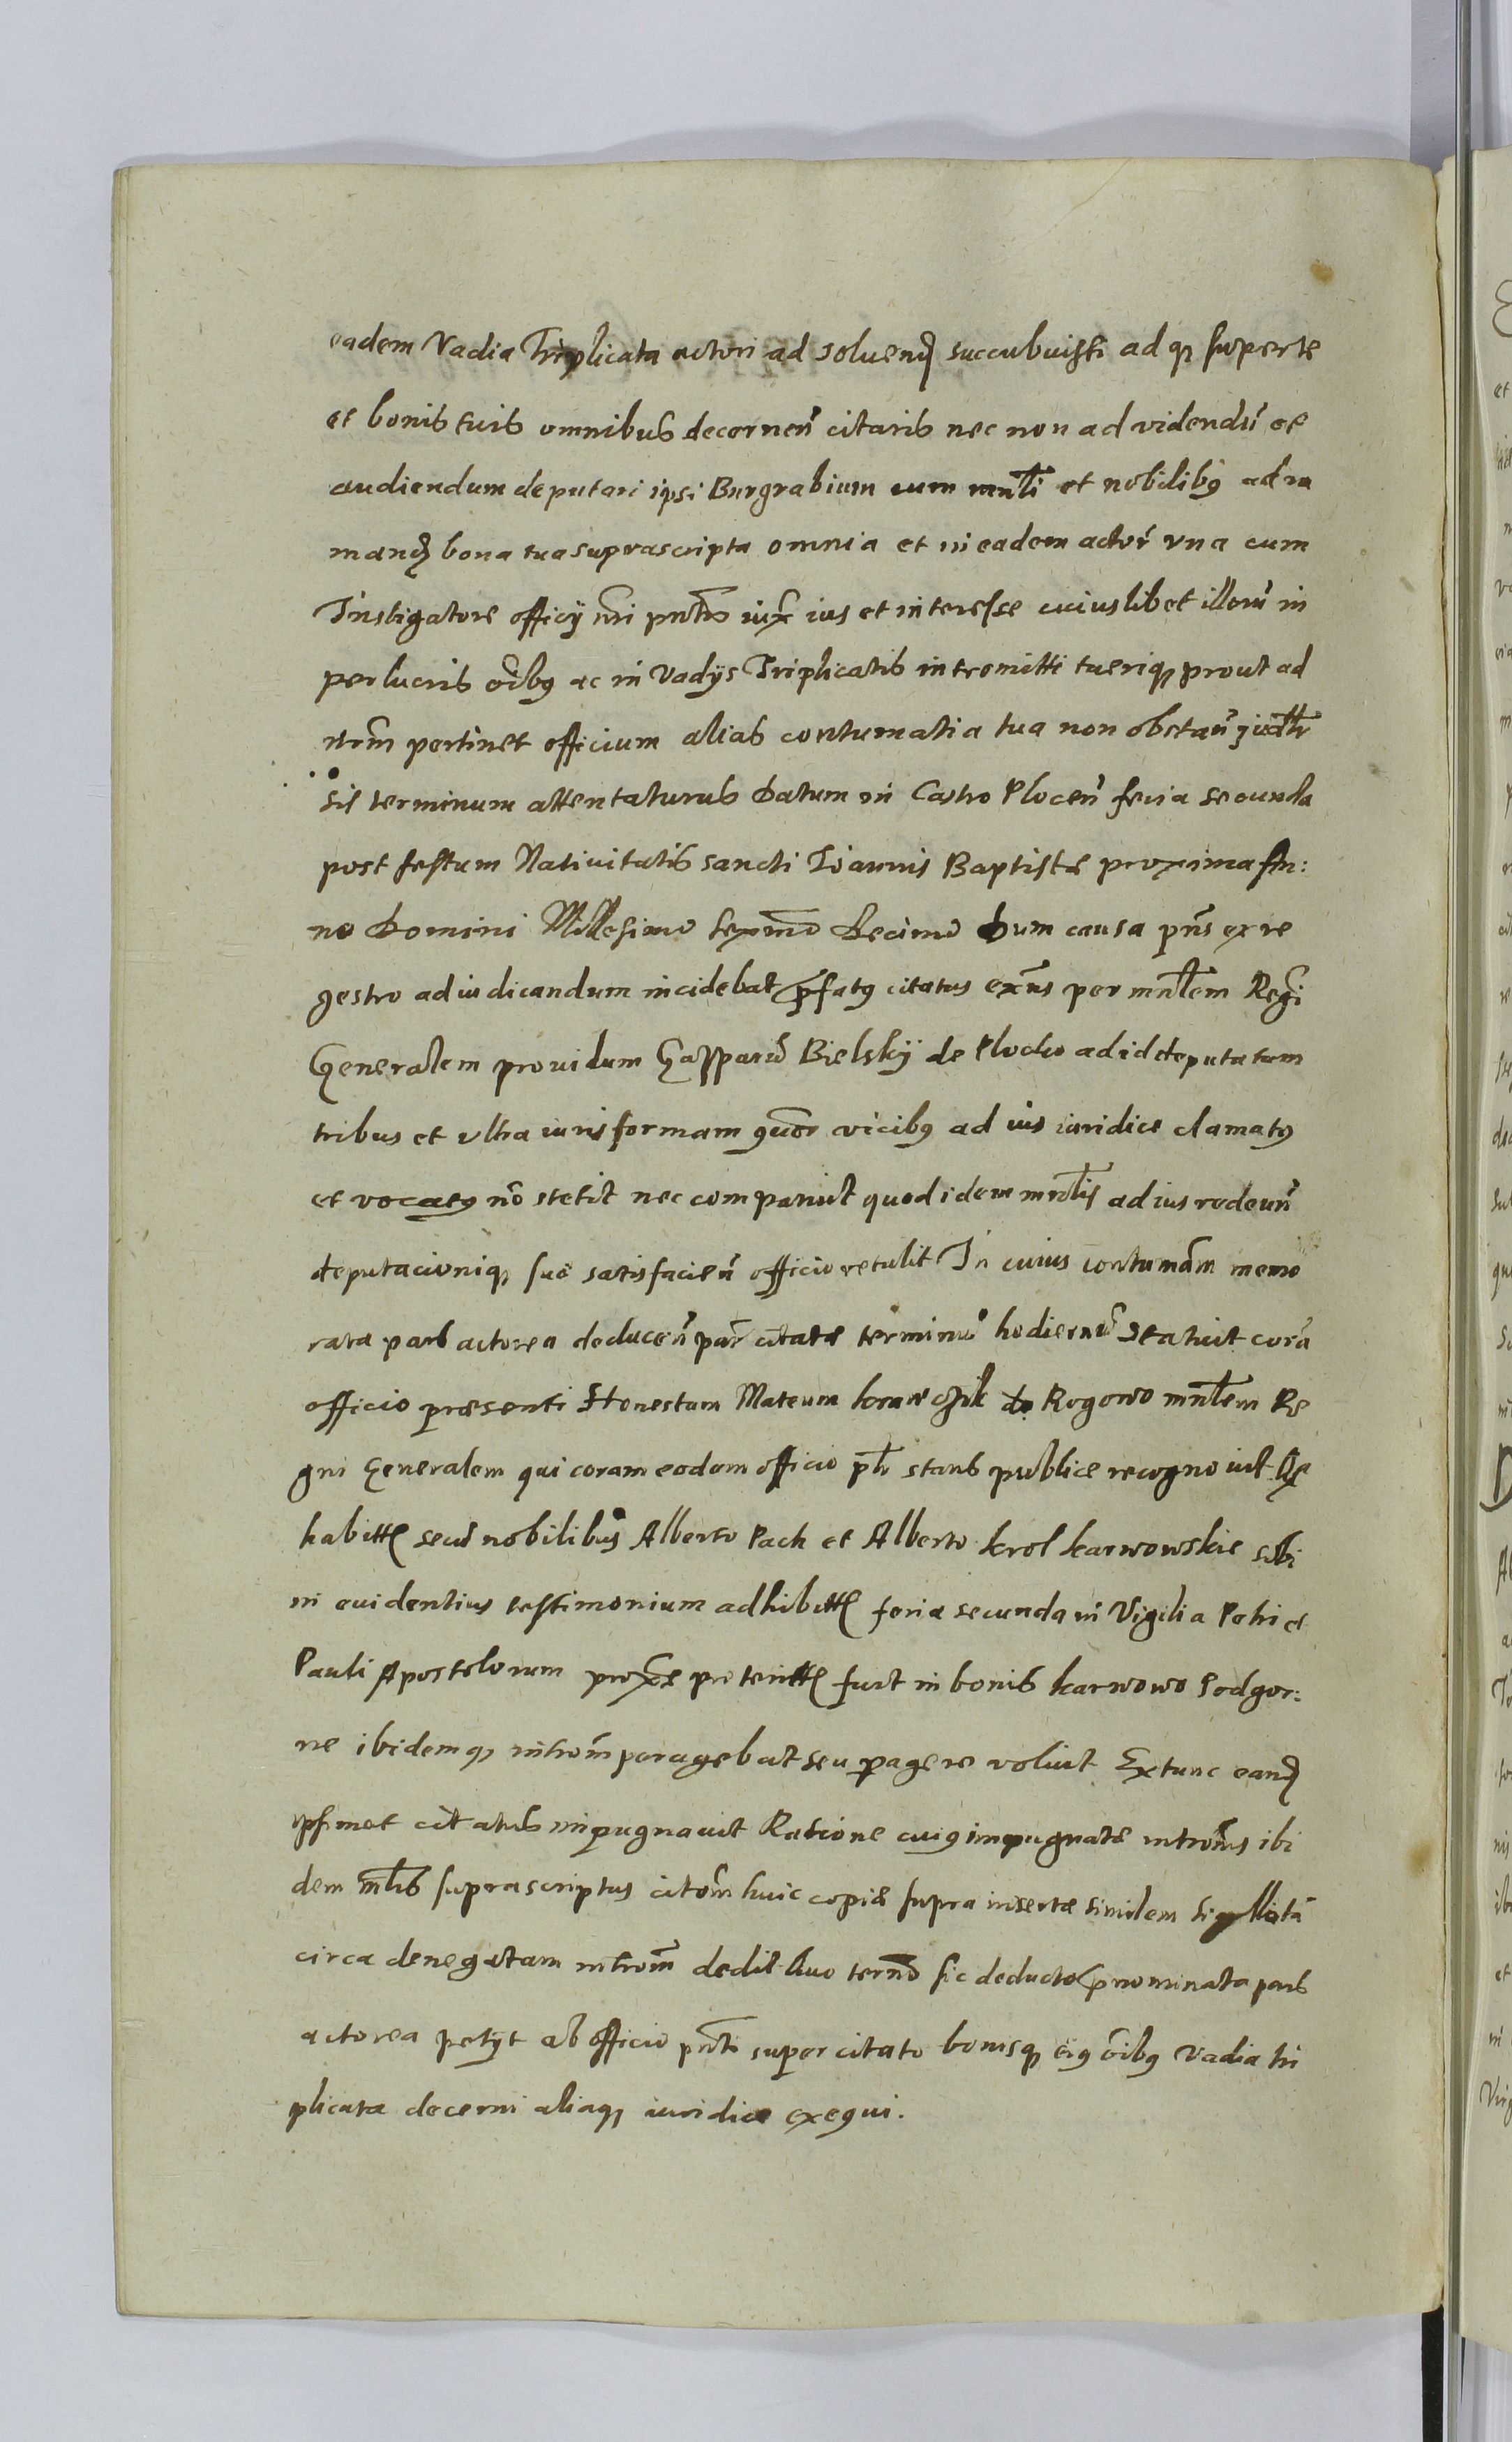 eadem Vadia Triplicata actori ad soluend succubuisti ad q̨ super te
et bonis tuis omnibus decernen̄ citaris nec non ad videndū et
audiendum deputari ipsi Burgrabium cum mnl̄i et nobilib9 ad ra
mand bona tua suprascripta omnia et in eadem actor̄ vna cum
Instigatore officÿ nr̄i pn̄tis iux̄ ius et interesse cuiuslibet illorū in
perlucris oīb9 ac in Vadÿs Triplicatis intromitti tueriq̨ prout ad
nr̄m pertinet officium alias contumatia tua non obstan̄
sis terminum attentaturus Datum in Castro Plocen̄ feria secunda
post festum Natiuitatis sancti Ioannis Baptistæ proxima An:
no Domini Millesimo sexmō Decimo Dum causa pn̄s ex re
gestro adiudicandum incidebat p̄fat9 citatus ex̄ns per mnl̄em Regni
Generalem prouidum Gasparū Bielskÿ de Plocko ad id deputatum
tribus et vltra iuris formam quor̄ vicib9 ad ius iuridice clamat9
et vocat9 nō stetit nec comparuit quod idem mnl̄is ad ius redeun̄
deputacioniq̨ suæ satisfacien̄ officio retulit In cuius contumām memo
rata pars actorea deducen̄ par̄ citatæ terminū hodiernū statuit corā
officio præsenti Honestum Mateum krawczik de Rogowo mnl̄em Re
gni Generalem qui coram eodem officio pn̄ti stans publice recognouit Qr̄
habitt secū nobilibus Alberto Pach et Alberto krol karwowskie sibi
in euidentius testimonium adhibitt feria secunda in Vigilia Petri et
Pauli Apostolorum prox̄e preteritt fuit in bonis karwowo Podgor:
ne ibidemq̨ introm̄ peragebat seu pagere voluit Extunc eand
ipsemet citatus impugnauit Ratione cui9 impugnatæ introm̄s ibi
dem ml̄is suprascriptus citom̄ huic copiæ supra insertæ similem sigillatā
circa denegatam introm̄ dedit Quo tern̄o sic deducto prnominata pars
actorea petÿt ab officio pn̄ti super citato bonisq̨ ei9 oīb9 Vadia tri
plicata decerni aliaq̨ iuridice exequi.